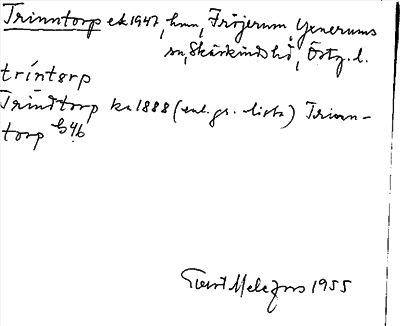 Trinntorp ek 1947, hmn, Fröjerum, Yxnerums
sn, Skärkinds hd, Östg. l.
trintørp
Trindtorp ka 1888 (enl. gr. lista) Trinn-
torp GS 46
1955